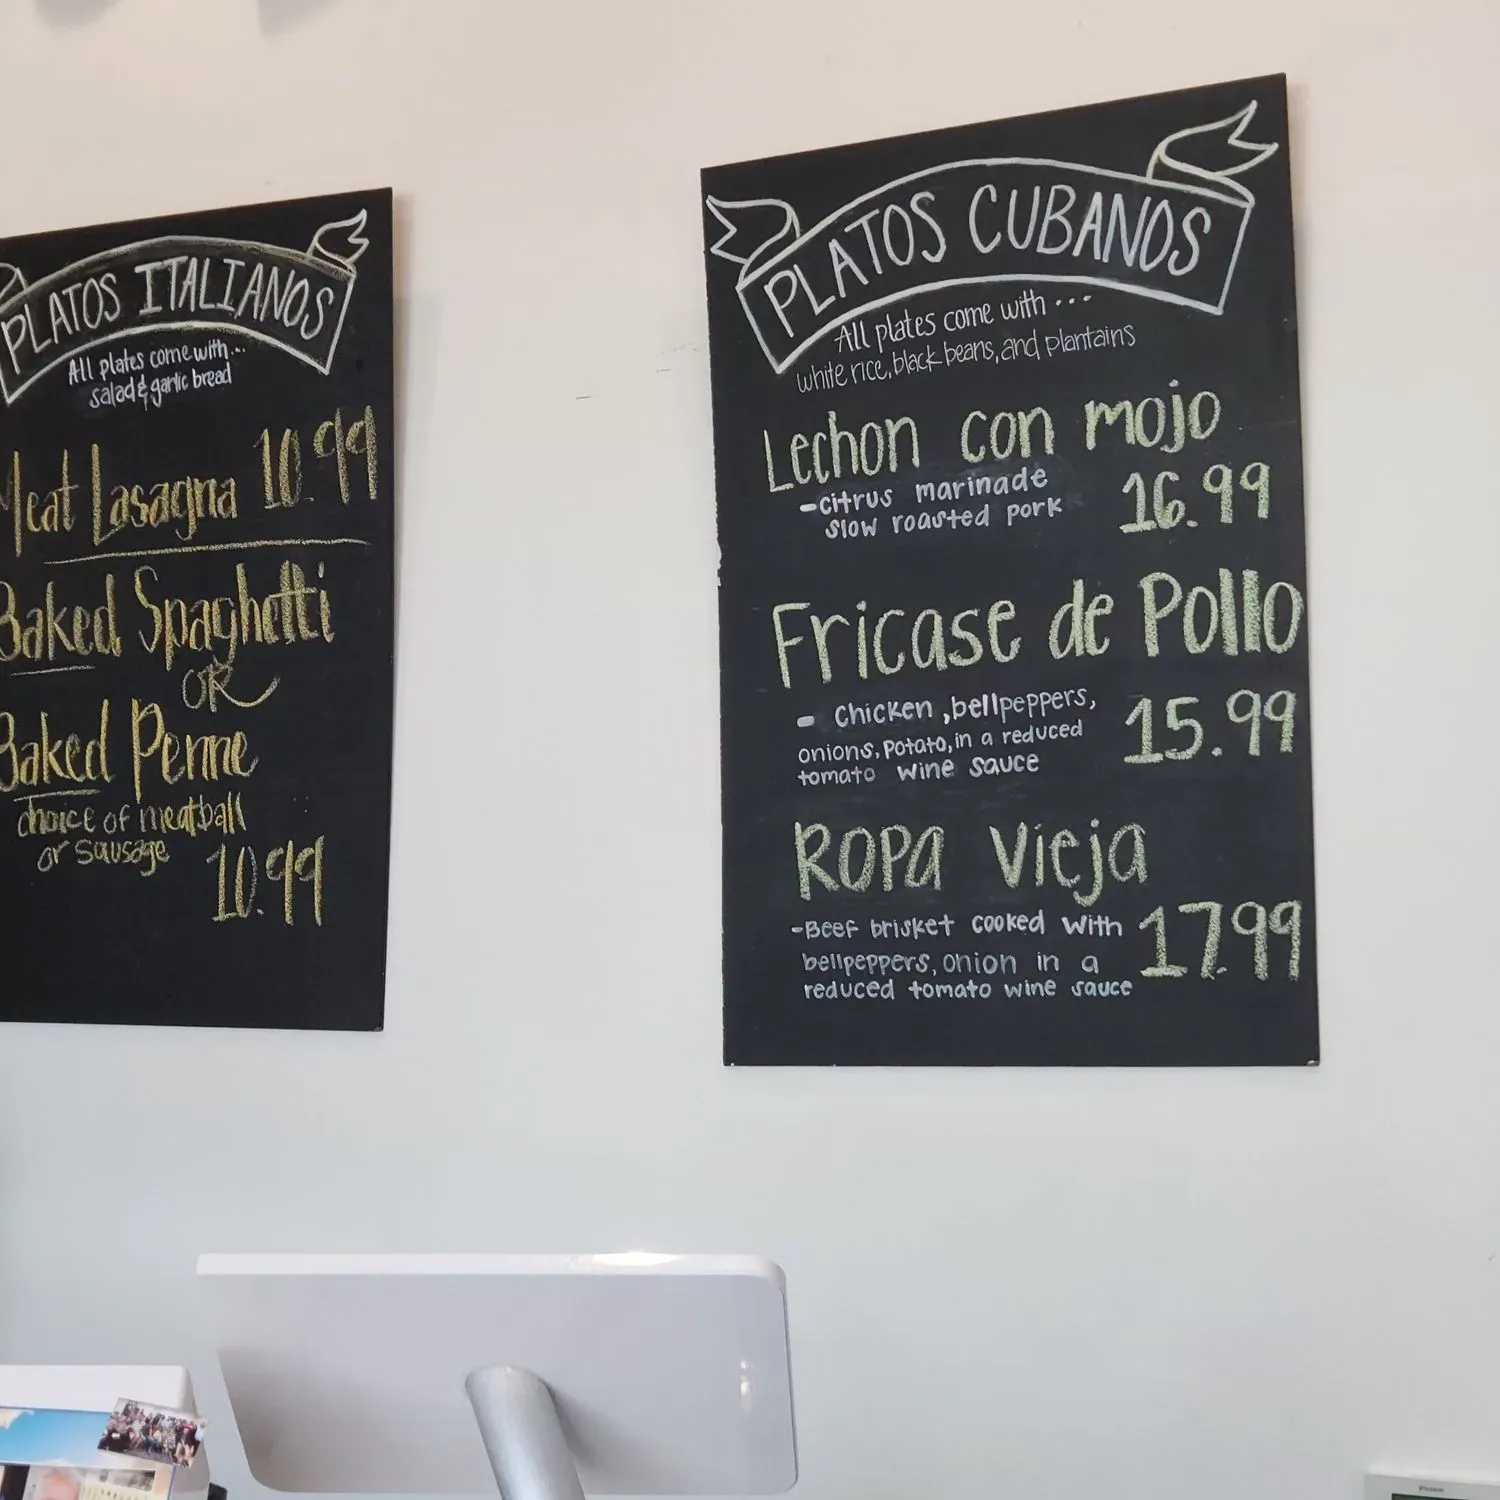 PLATOS ITALIANOS
All plates come with...
salad & garlic bread
Meat Lasagna 10.99
Baked Spaghetti
OR
Baked Penne
choice of meatball
or sausage
10.99
PLATOS CUBANOS
All plates come with ...
white rice, black beans, and plantains
Lechon con mojo
-citrus marinade
slow roasted pork
16.99
Fricase de Pollo
- Chicken, bellpeppers,
onions, potato, in a reduced
tomato wine sauce
15.99
ROPA Vieja
-Beef brisket cooked with
bellpeppers, onion in a
reduced tomato wine sauce
17.99